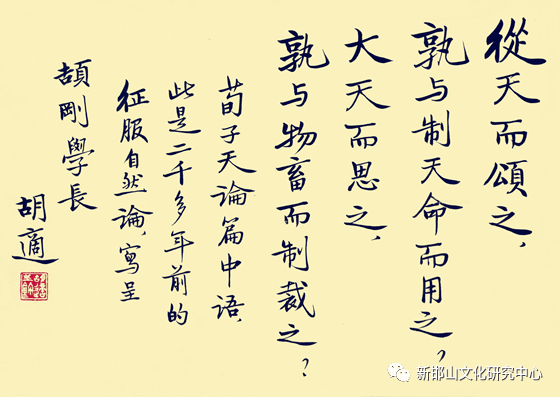 從天而頌之、
孰与制天命而用之？
大天而思之、
孰与物畜而制裁之？
荀子天論篇中语、
此是二千多年前的
征服自然論、寫呈
頡剛學長
胡適
新邯山文化研究中心